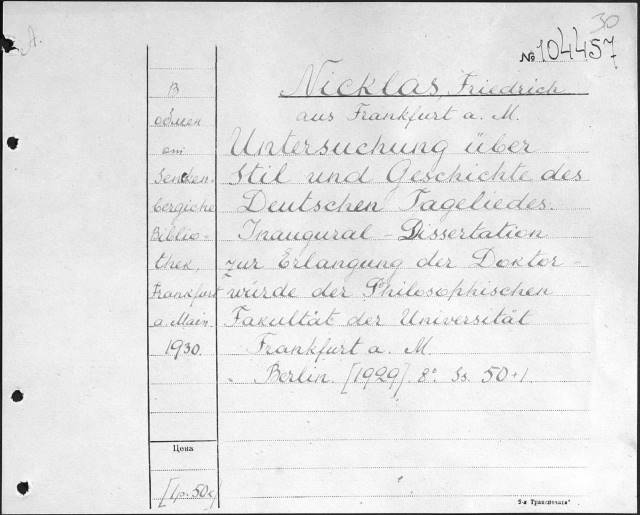 30
№ 104457
A.
Nicklas, Friedrich
aus Frankfurt a. M.
Untersuchung über
Stil und Geschichte des
Deutschen Tageliedes.
Inaugural-Dissertation
zur Erlangung der Doktor-
würde der Philosophischen
Fakultät der Universität
Frankfurt a. M.
Berlin. [1929]. 8° Ss. 50+1.
В
обмен
от
Senken-
bergiche
Biblio-
thek,
Frankfurt
a. Main.
1930.
Цена
[1р. 50к]